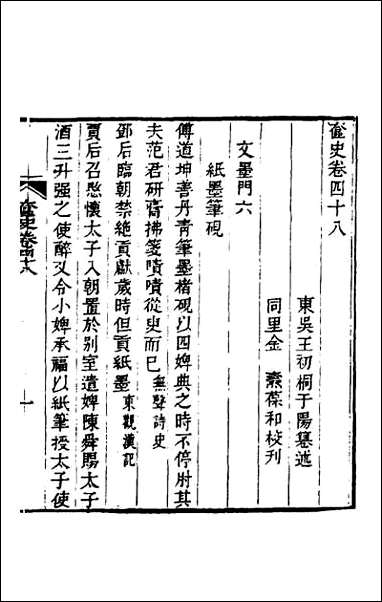 奩史卷四十八
東吳王初桐于陽纂述
同里金 熹葆和校刋
文墨門六
紙墨筆硯
傅道坤善丹青筆墨楮硯以四婢典之時不停肘其
夫范君研脂拂箋嘖嘖從臾而已無聲詩史
鄧后臨朝禁絶貢獻歲時但貢紙墨東觀漢記
賈后召愍懷太子入朝置於别室遣婢陳舜賜太子
酒三升强之使醉又令小婢承福以紙筆授太子使
奩史卷四十八
一